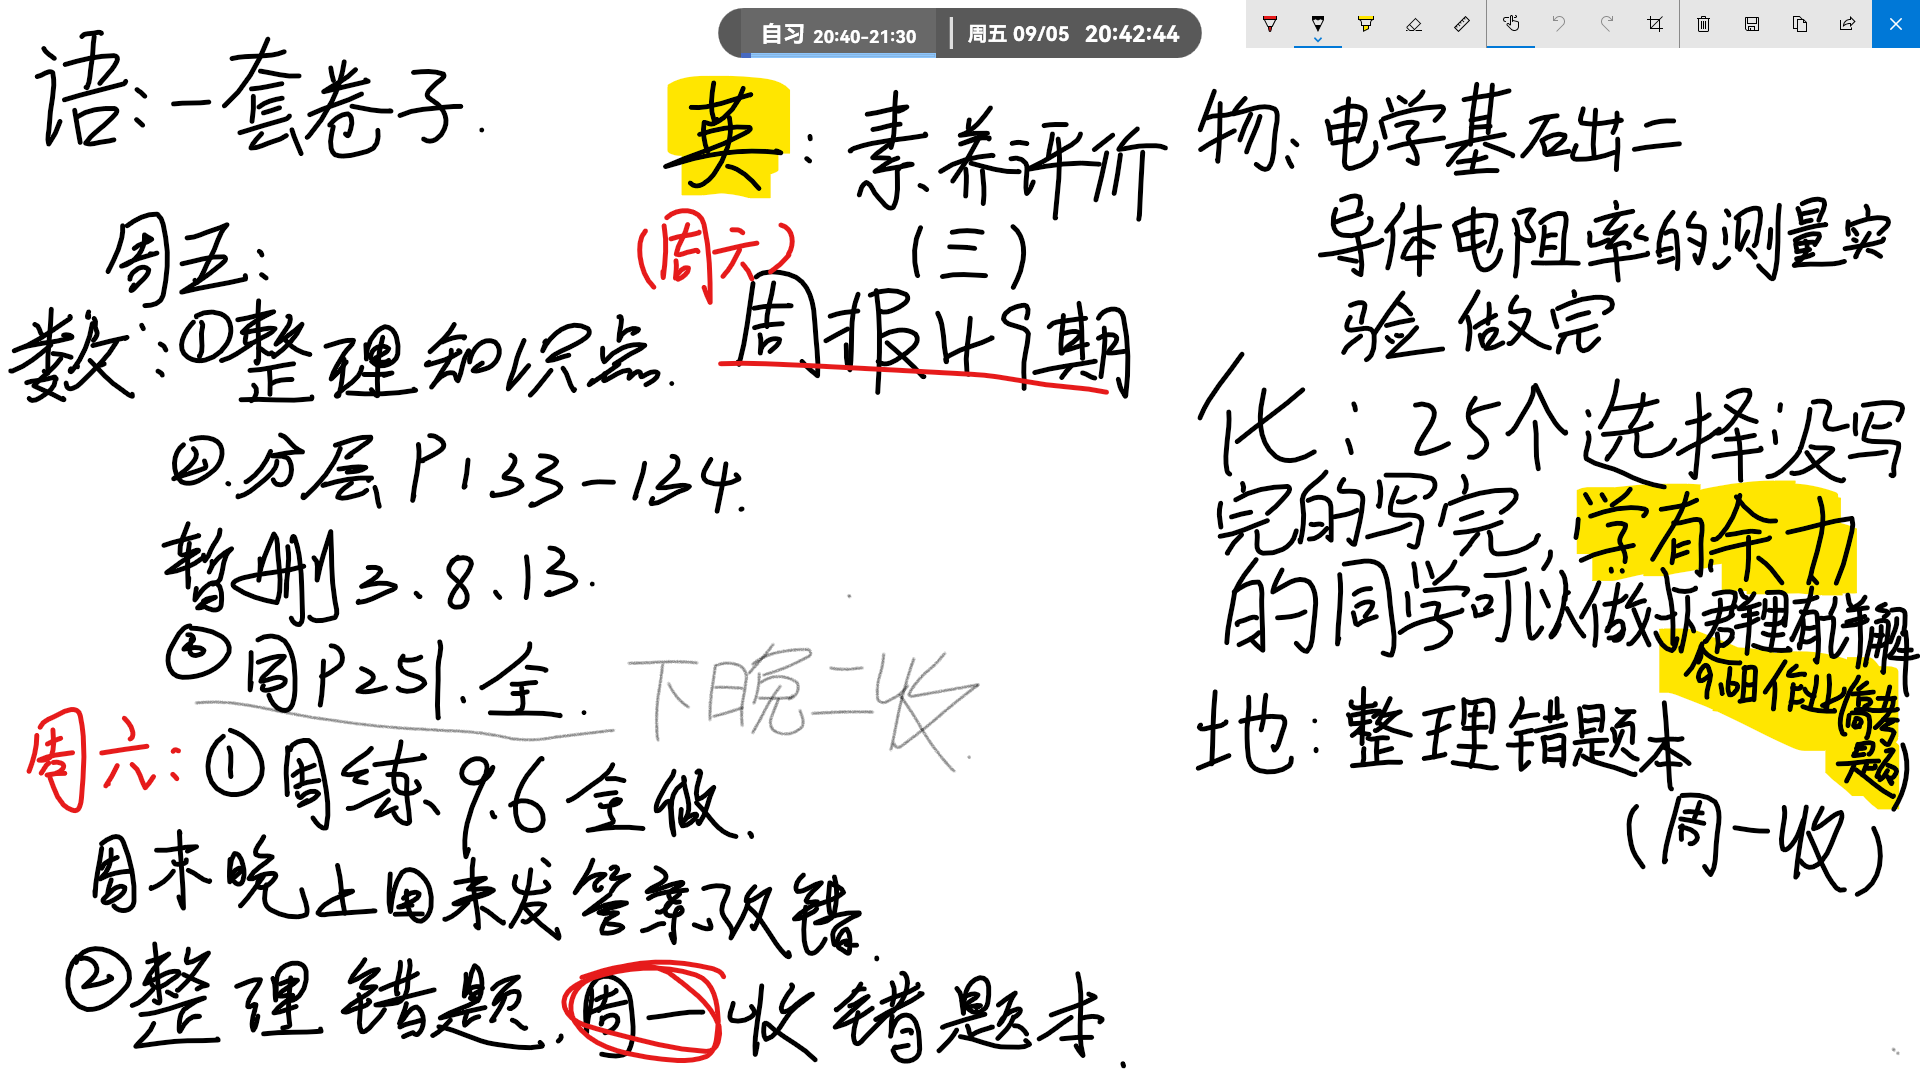 自习 20:40-21:30 周五 09/05 20:42:44
语:一套卷子.
周五:
数:①整理知识点.
②.分层P133-134.
暂删3、8、13.
③同P251.全.
下晚二收.
周六:①周练9.6全做.
周末晚上回来发答案改错.
②整理错题,周一收错题本.
英:素养评价
(三)
(周六)
周报49期
物:电学基础二
导体电阻率的测量实
验做完
化:25个选择没写
完的写完,学有余力
的同学可以做
群里有详解
9.6日作业(高考
题)
地:整理错题本
(周一收)